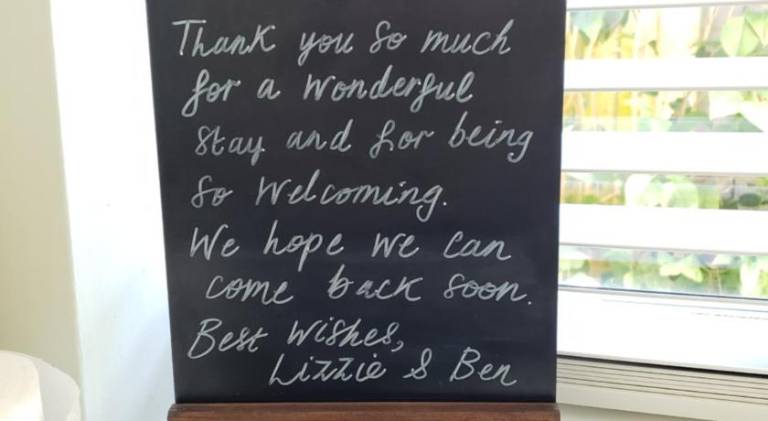 Thank you so much
for a wonderful
stay and for being
so welcoming.
We hope we can
come back soon.
Best Wishes,
Lizzie & Ben